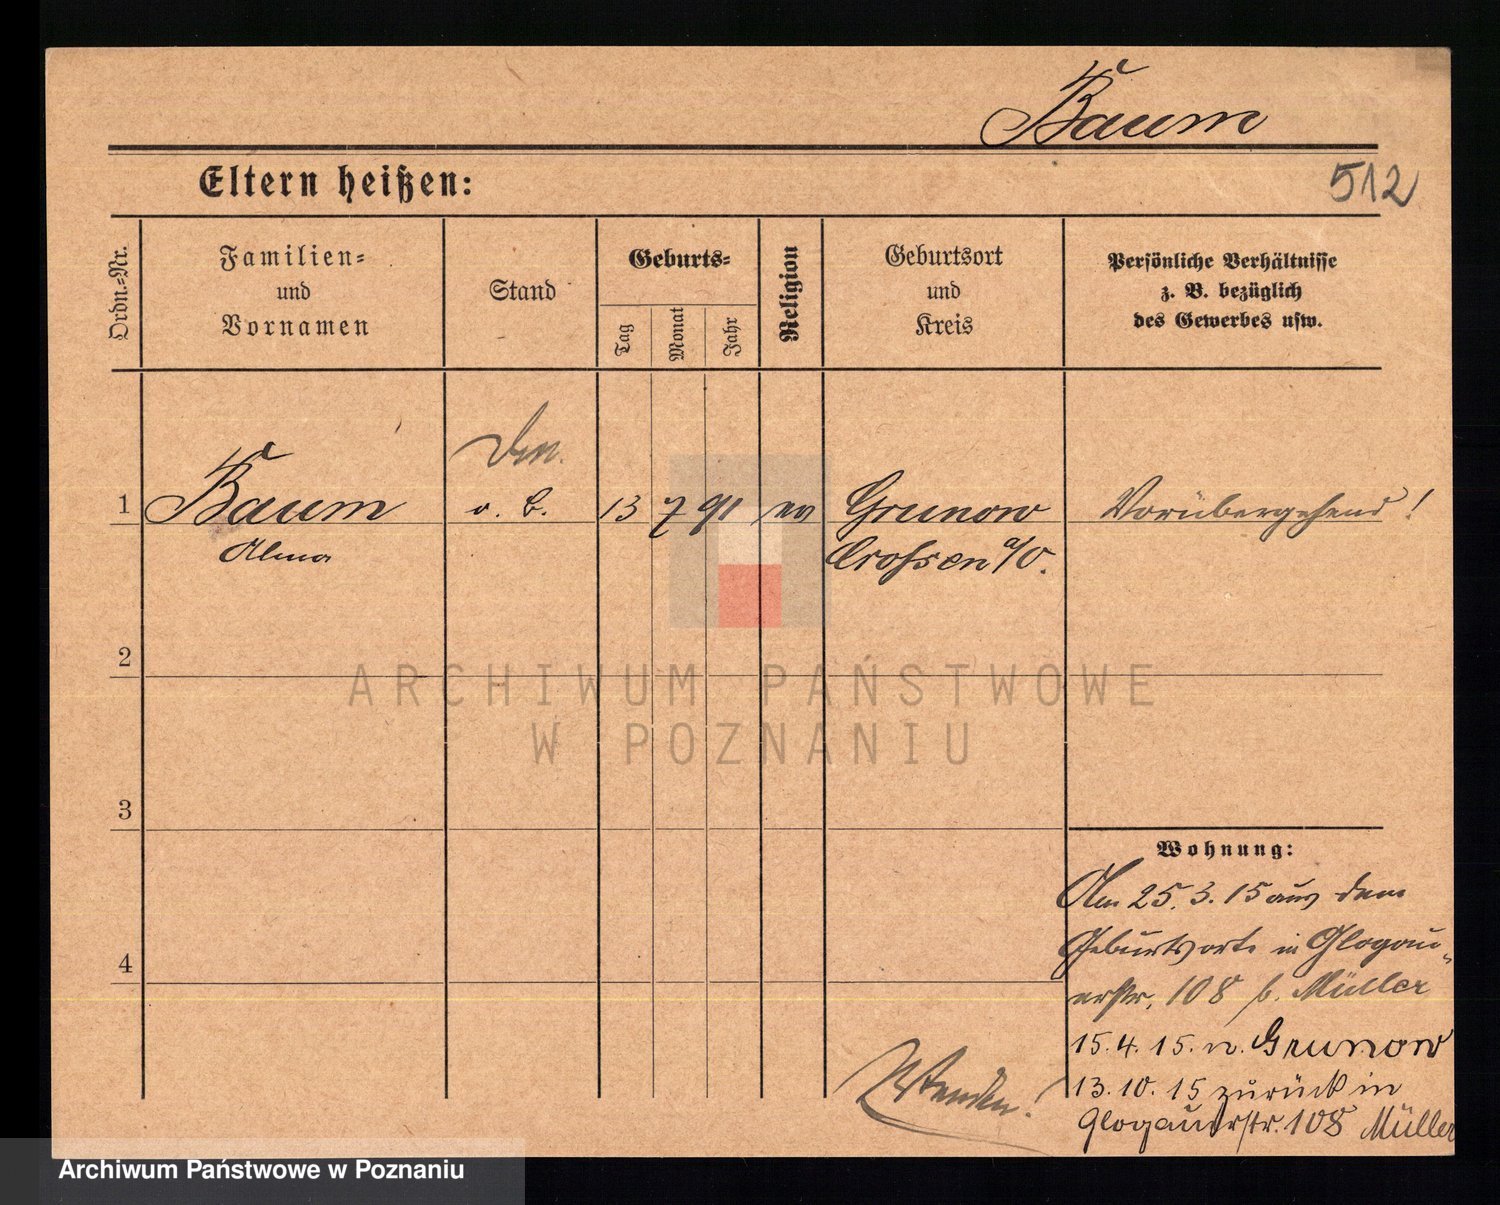 Baum
Eltern heißen:
512
Ordn.-Nr.
Familien-
und
Vornamen
Stand
Geburts-
Tag
Monat
Jahr
Religion
Geburtsort
und
Kreis
Persönliche Verhältnisse
z. B. bezüglich
des Gewerbes usw.
1
Baum
Alma
o. B.
13
7
91
ev
Grunow
Crossen a/O.
Vorübergehend!
2
ARCHIWUM PAŃSTWOWE
W POZNANIU
3
Wohnung:
Am 25. 3. 15 aus dem
Geburtsorte in Glogau-
erstr. 108 b. Müller
15. 4. 15. n. Grunow
13. 10. 15 zurück in
Glogauerstr. 108 Müller
4
Wenden!
Archiwum Państwowe w Poznaniu